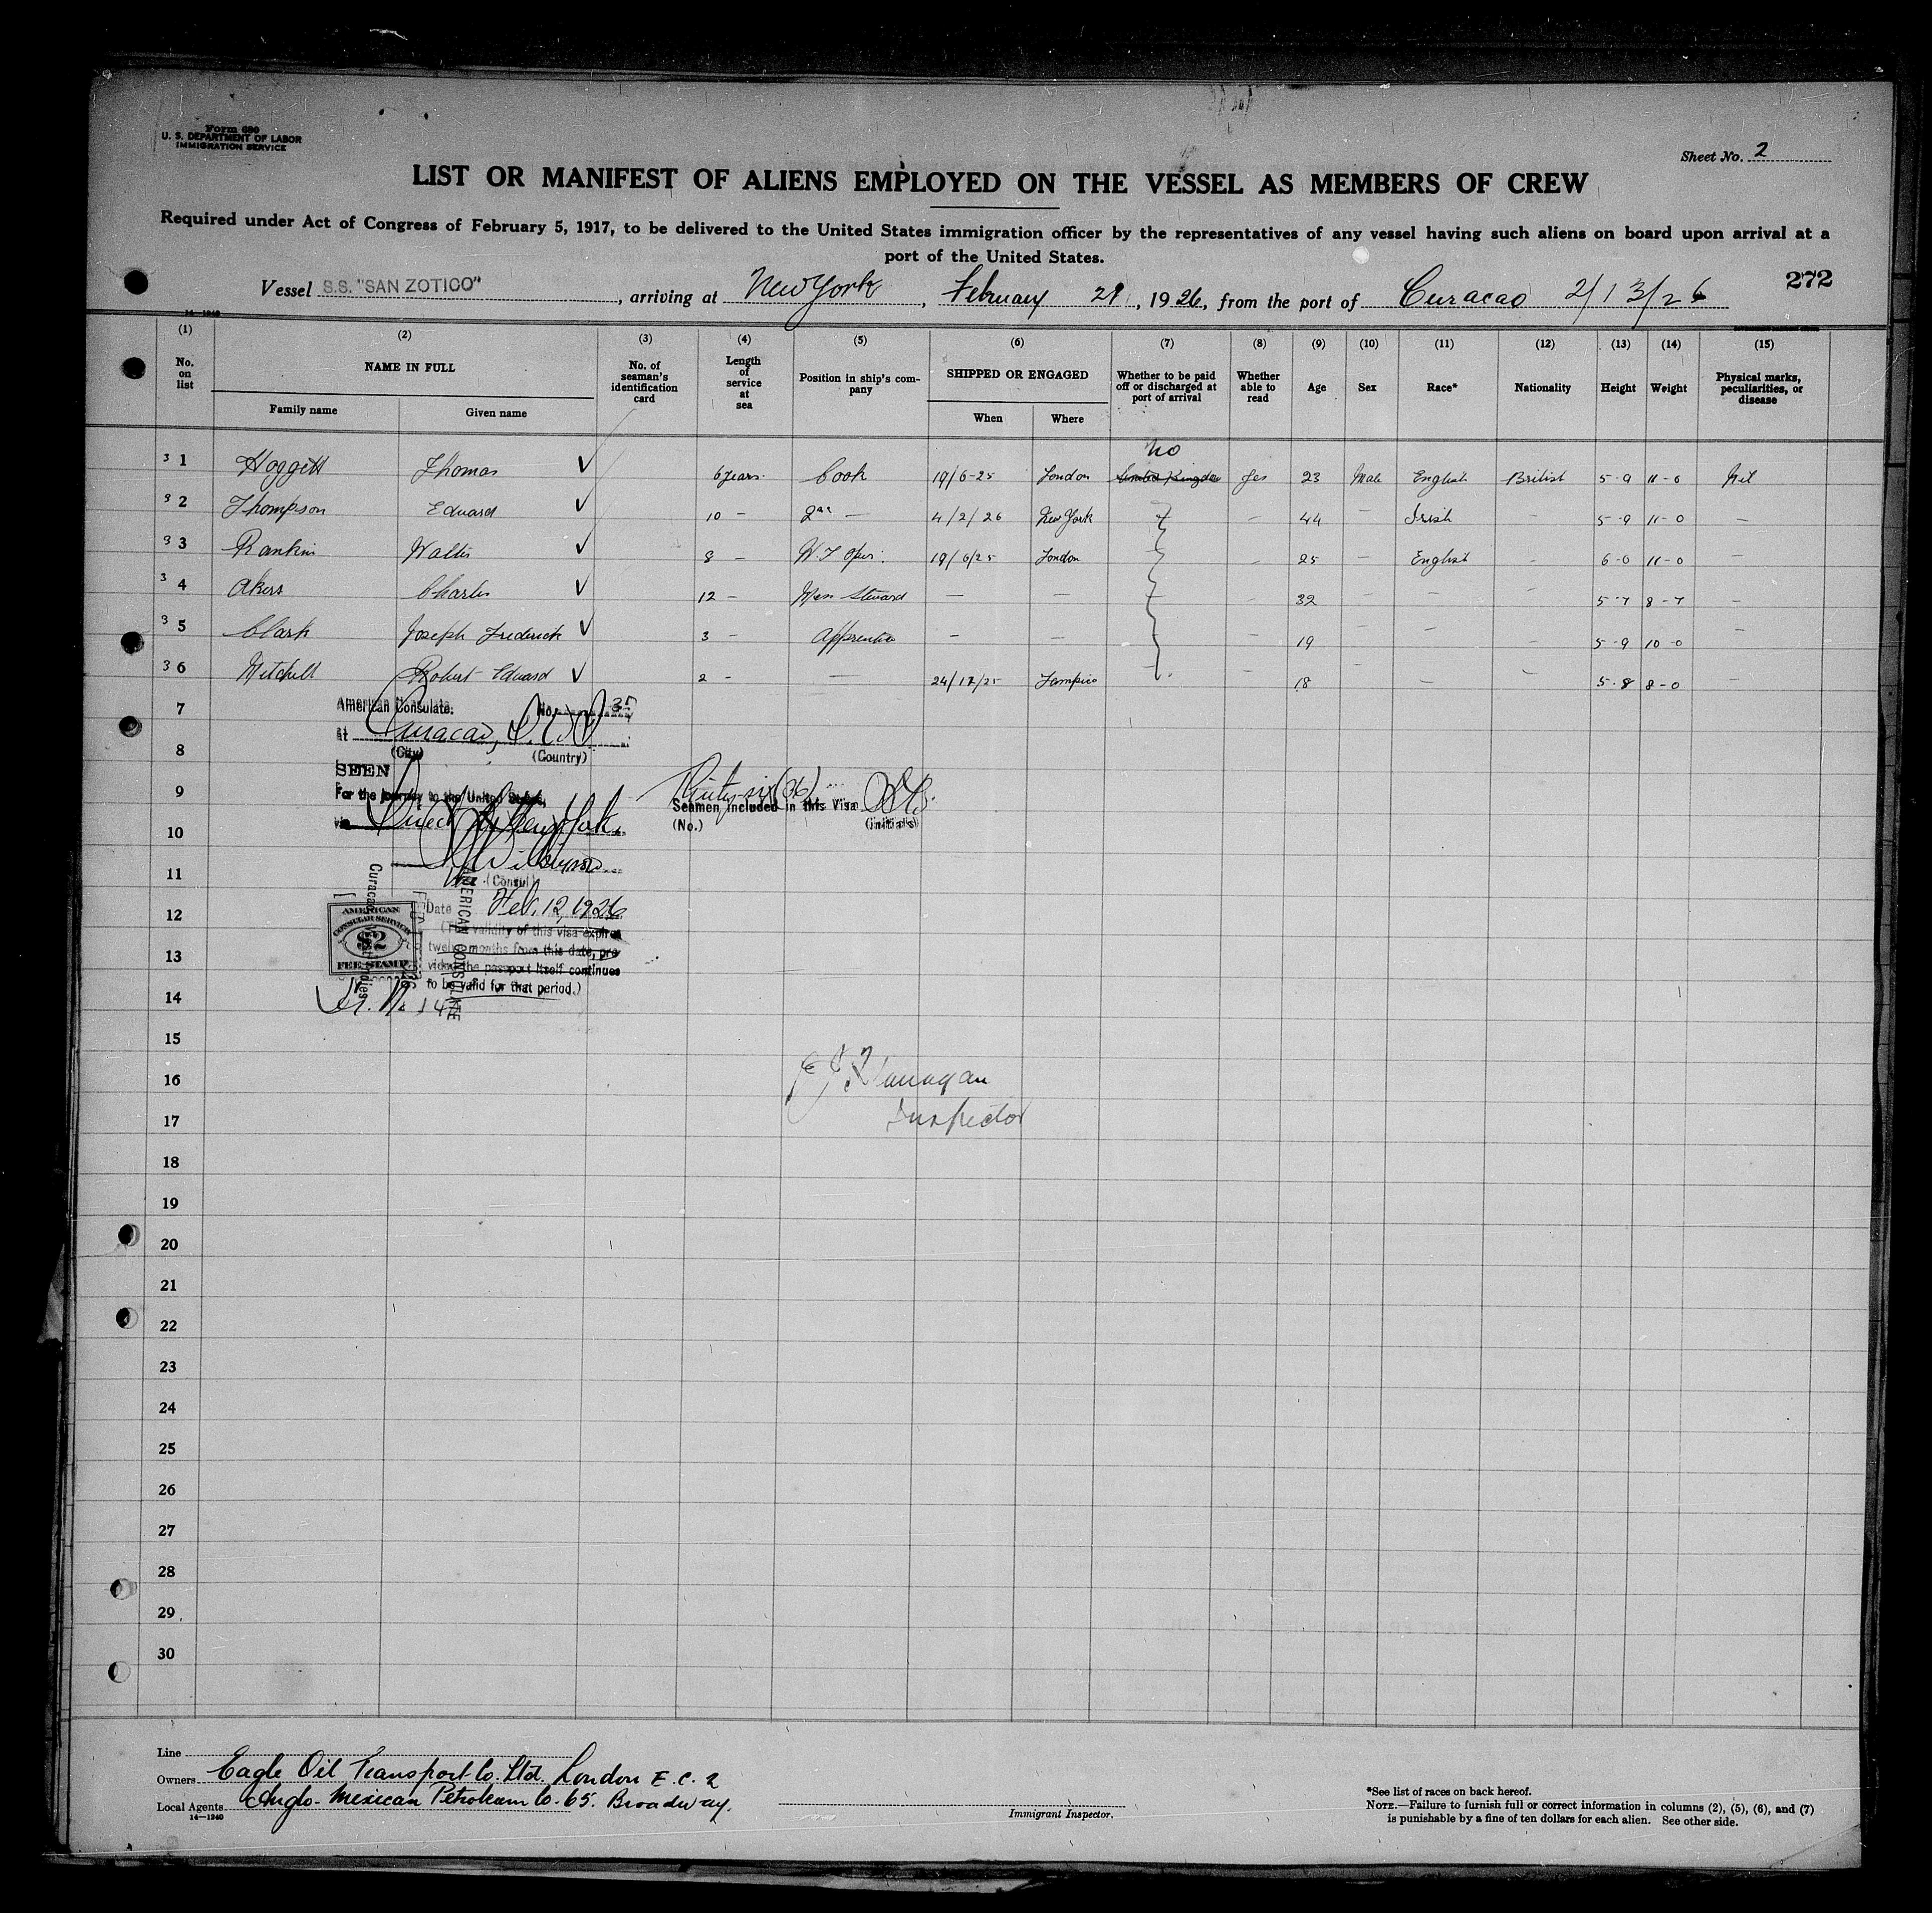 Form 680
U. S. DEPARTMENT OF LABOR
IMMIGRATION SERVICE
Sheet No. 2
LIST OR MANIFEST OF ALIENS EMPLOYED ON THE VESSEL AS MEMBERS OF CREW
Required under Act of Congress of February 5, 1917, to be delivered to the United States immigration officer by the representatives of any vessel having such aliens on board upon arrival at a
port of the United States.
272
Vessel S.S. "SAN ZOTICO", arriving at New York, February 21, 1926, from the port of Curacao 2/13/26
14—1240
(1) (2) (3) (4) (5) (6) (7) (8) (9) (10) (11) (12) (13) (14) (15)
No. on list NAME IN FULL No. of seaman's identification card Length of service at sea Position in ship's company SHIPPED OR ENGAGED Whether to be paid off or discharged at port of arrival Whether able to read Age Sex Race* Nationality Height Weight Physical marks, peculiarities, or disease
Family name Given name When Where
No
3 1 Hoggett Thomas ✓ 6 years Cook 19/6-25 London United Kingdom Yes 23 Male English British 5-9 11-6 Nil
3 2 Thompson Edward ✓ 10 - 2nd — 4/2/26 New York — 44 — Irish — 5-9 11-0 —
3 3 Rankin Walter ✓ 8 - W. T. Oper. 19/6/25 London — 25 — English — 6-0 11-0 —
3 4 Akers Charles ✓ 12 - Mess Steward — — — 32 — — — 5-7 8-7 —
3 5 Clark Joseph Frederick ✓ 3 - Apprentice — — — 19 — — — 5-9 10-0 —
3 6 Mitchell Robert Edward ✓ 2 - — 24/12/25 Tampico — 18 — — — 5-8 8-0 —
7
American Consulate. No. 35
at Curacao, D.W.I.
(City) (Country)
8
SEEN
9
For the journey to the United States,
Thirty-six (36)
Seamen included in this Visa
(No.) (initials)
10
via Direct to New York
11
Vice (Consul)
12
Date Feb. 12, 1926
(The validity of this visa expires
twelve months from this date, pro-
viding the passport itself continues
to be valid for that period.)
AMERICAN
CONSULAR SERVICE
$2
FEE STAMP
AMERICAN CONSULATE
13
14
15
16
Flanagan
Inspector
17
18
19
20
21
22
23
24
25
26
27
28
29
30
Line
Owners Eagle Oil Transport Co. Ltd. London E.C. 2
Local Agents Anglo-Mexican Petroleum Co. 65. Broadway.
14—1240
Immigrant Inspector.
*See list of races on back hereof.
NOTE.—Failure to furnish full or correct information in columns (2), (5), (6), and (7)
is punishable by a fine of ten dollars for each alien. See other side.